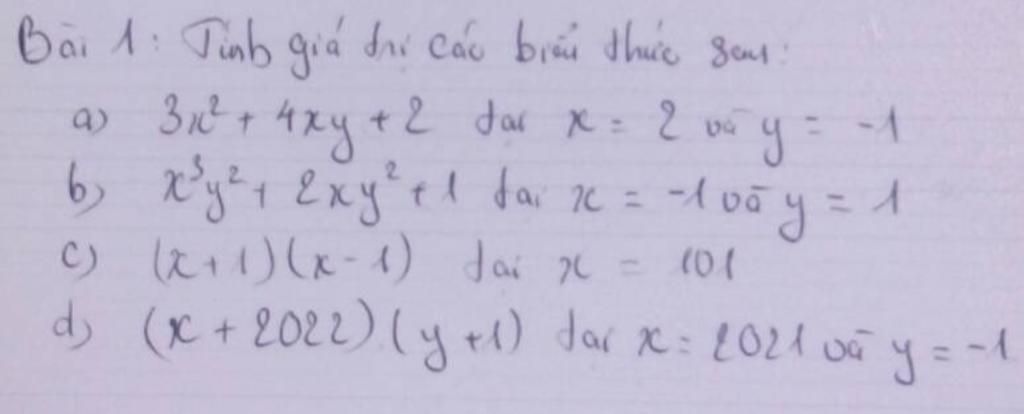 Bài 1: Tính giá trị các biểu thức sau:
a) 3x² + 4xy + 2 tại x = 2 và y = -1
b) x³y² + 2xy² + 1 tại x = -1 và y = 1
c) (x+1)(x-1) tại x = 101
d) (x + 2022)(y+1) tại x = 2021 và y = -1